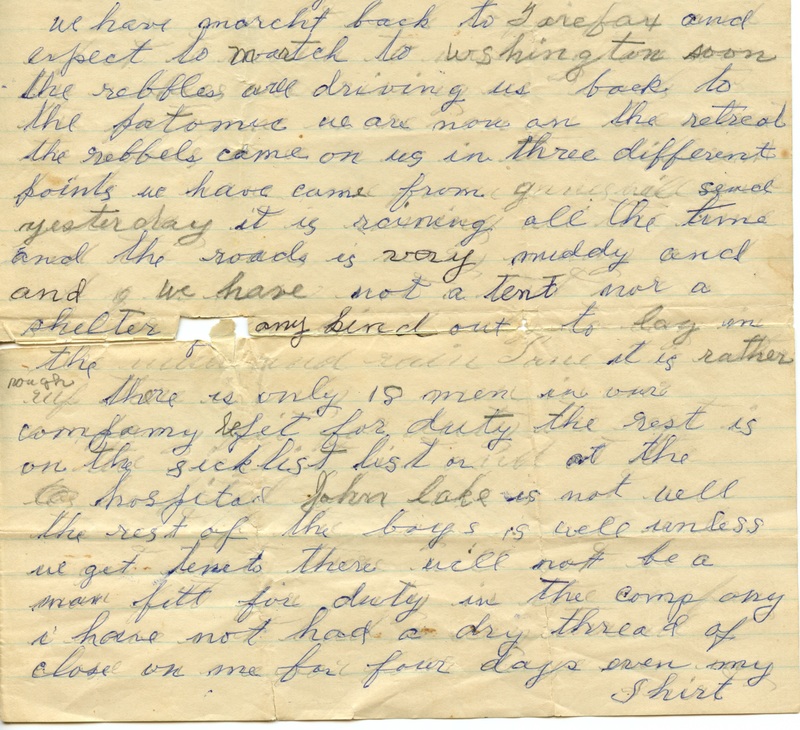 we have marcht back to Farefax and
expect to martch to wshington soon
the rebbles are driving us back to
the potomic we are now on the retreat
the rebbels come on us in three different
points we have came from since
yesterday it is raining all the time
and the roads is very muddy and
and we have not a tent nor a
shelter any kind out to lay in
the mud and rain it is rather
rough there is only 18 men in our
compamy fit for duty the rest is
on the sicklist list or at the
hospital John lake is not well
the rest of the boys is well unless
we get tents there will not be a
man fitt for duty in the company
i have not had a dry thread of
close on me for four days even my
Shirt